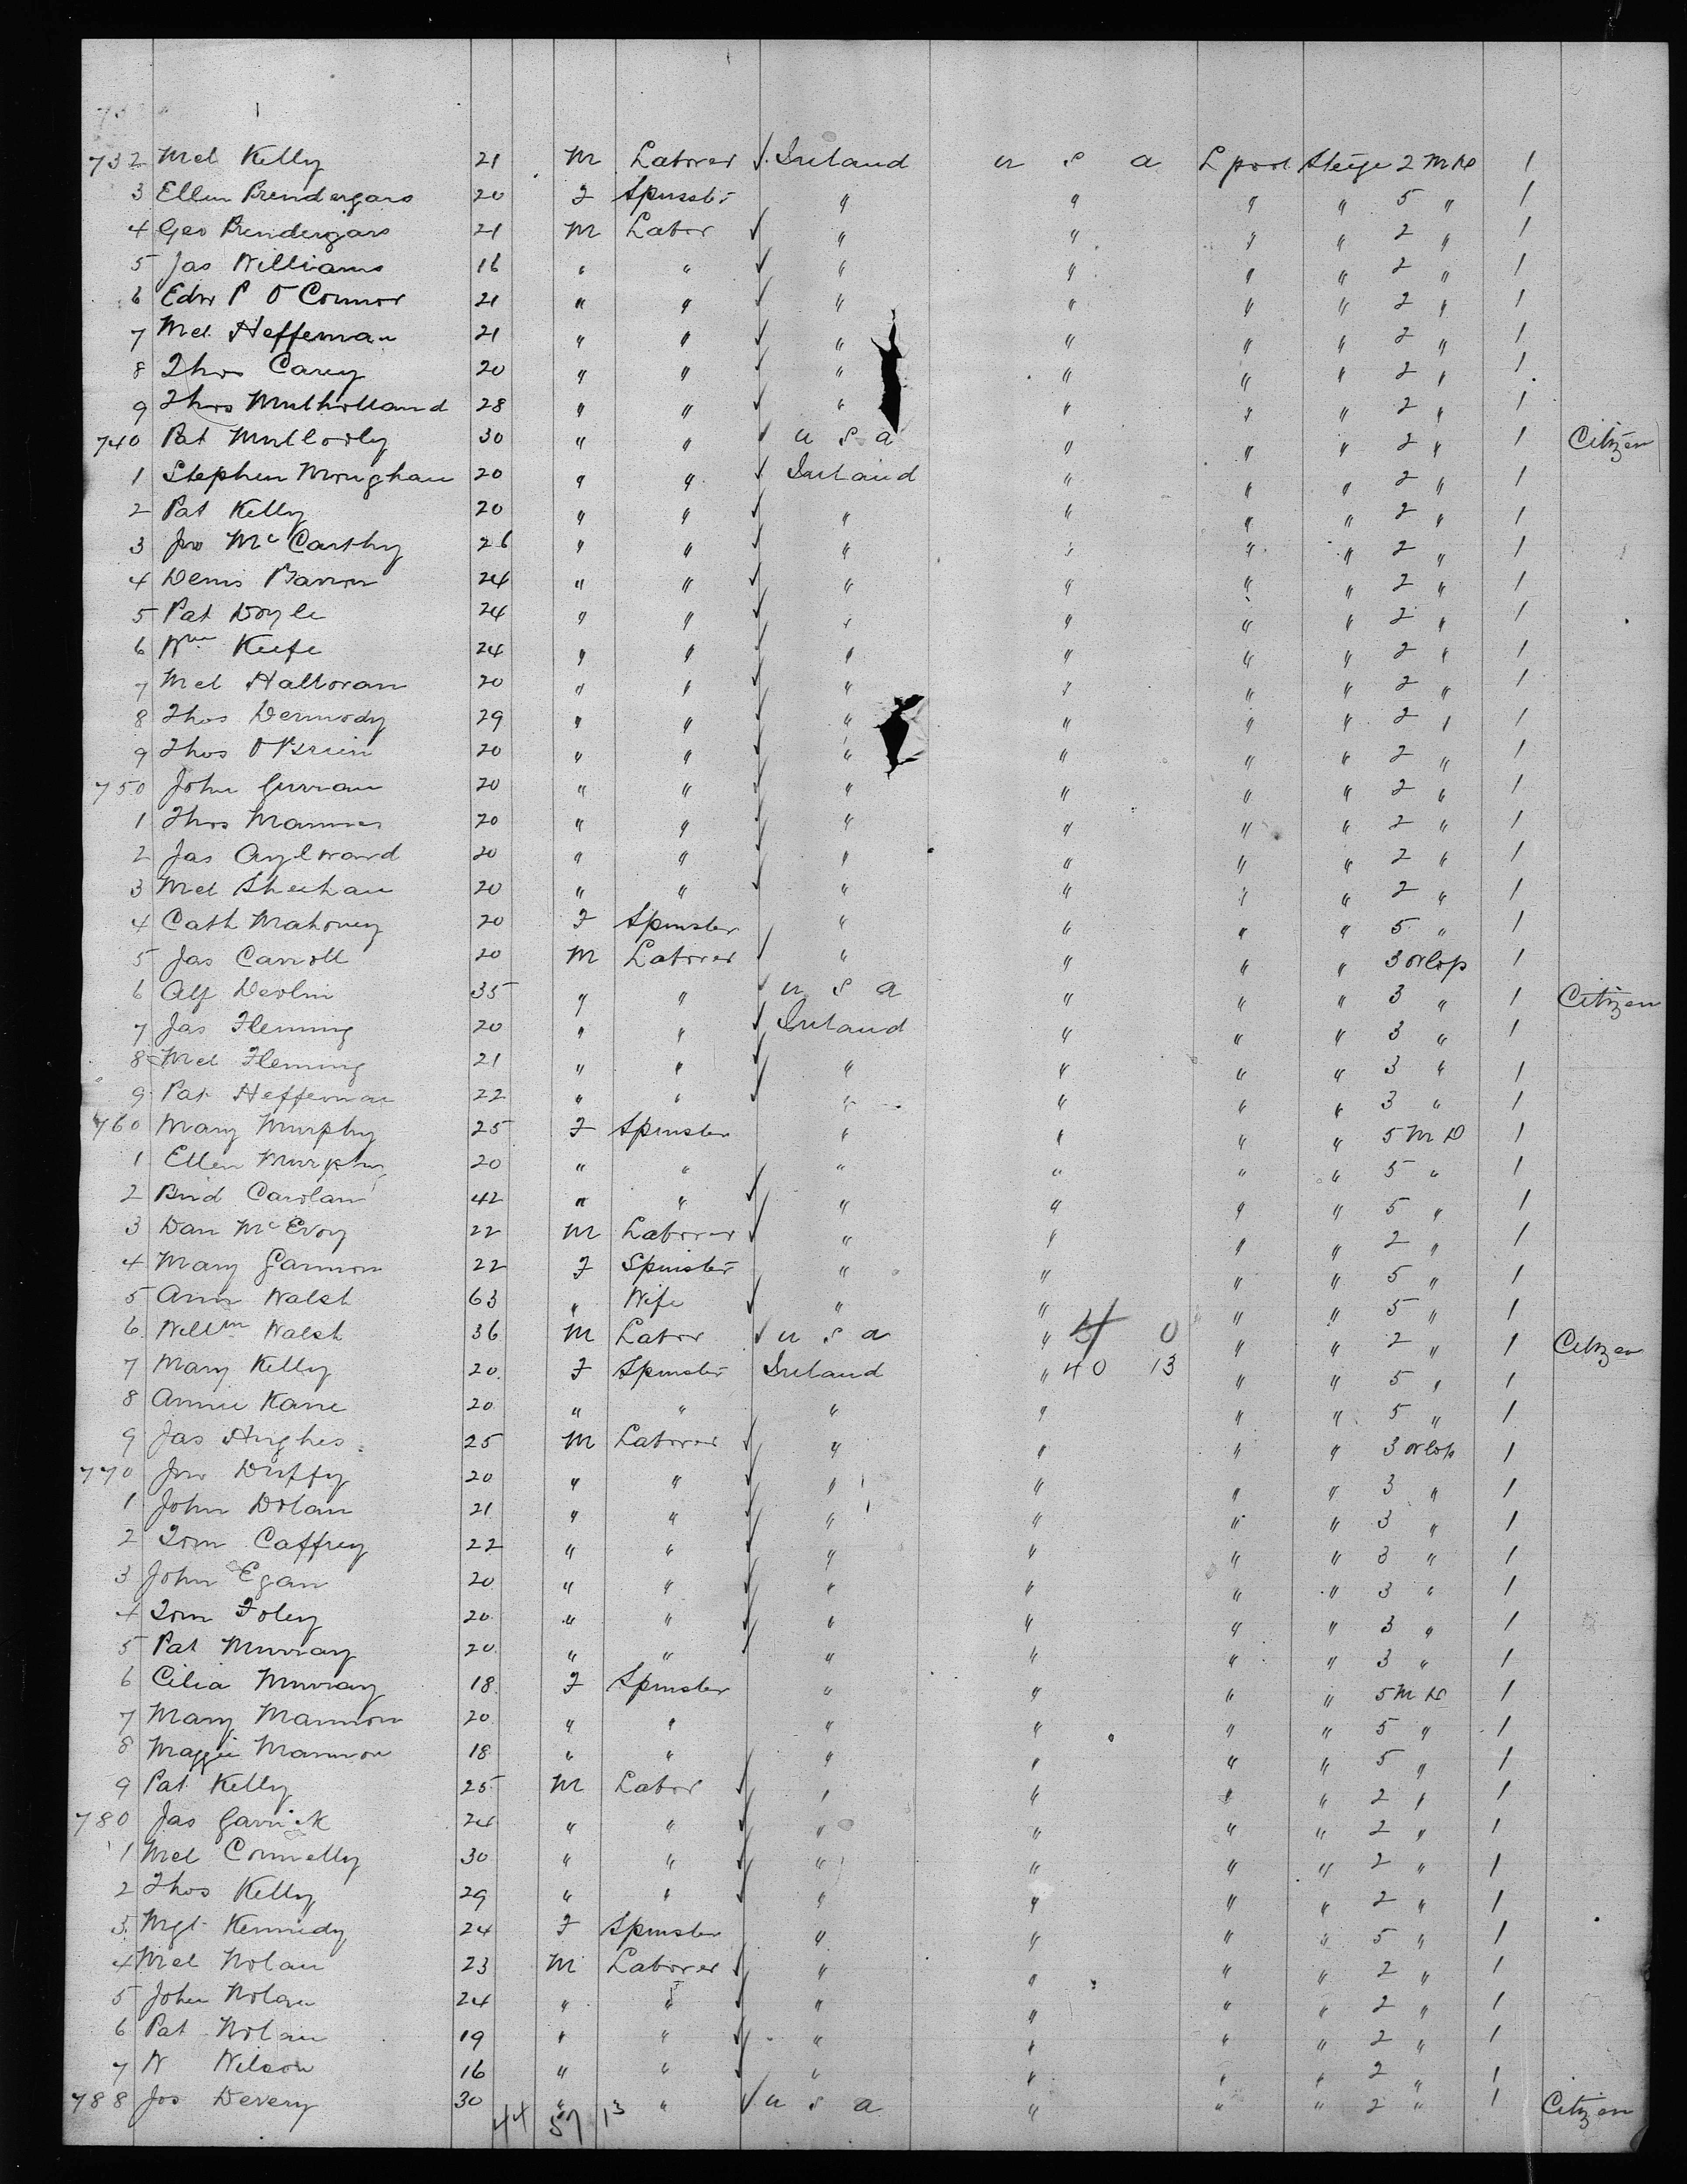 732 Mcl Kelly 21 M Laborer ✓ Ireland U S A Lpool Steige 2 M D 1
3 Ellen Prendergass 20 F Spinster " " " " 5 " 1
4 Geo Prendergass 21 M Labor ✓ " " " " 2 " 1
5 Jas Williams 16 " " ✓ " " " " 2 " 1
6 Edw P O'Connor 21 " " ✓ " " " " 2 " 1
7 Mcl Heffernan 21 " " ✓ " " " " 2 " 1
8 Thos Carey 20 " " ✓ " " " " 2 " 1
9 Thos Mulholland 28 " " ✓ " " " " 2 " 1
740 Pat Mullooly 30 " " ✓ U S A " " " 2 " 1 Citizen
1 Stephen Monghan 20 " " ✓ Ireland " " " 2 " 1
2 Pat Kelly 20 " " ✓ " " " " 2 " 1
3 Jno McCarthy 26 " " ✓ " " " " 2 " 1
4 Denis Barron 24 " " ✓ " " " " 2 " 1
5 Pat Doyle 24 " " ✓ " " " " 2 " 1
6 Wm Keefe 24 " " ✓ " " " " 2 " 1
7 Mcl Halloran 20 " " ✓ " " " " 2 " 1
8 Thos Dermody 29 " " ✓ " " " " 2 " 1
9 Thos O'Brien 20 " " ✓ " " " " 2 " 1
750 John Curran 20 " " ✓ " " " " 2 " 1
1 Thos Manner 20 " " ✓ " " " " 2 " 1
2 Jas Aylward 20 " " ✓ " " " " 2 " 1
3 Mcl Sheehan 20 " " ✓ " " " " 2 " 1
4 Cath Mahoney 20 F Spinster " " " " 5 " 1
5 Jas Carroll 20 M Laborer ✓ " " " " 3 orlop 1
6 Alf Devlin 35 " " ✓ U S A " " " 3 " 1 Citizen
7 Jas Fleming 20 " " ✓ Ireland " " " 3 " 1
8 Mcl Fleming 21 " " ✓ " " " " 3 " 1
9 Pat Heffernan 22 " " ✓ " " " " 3 " 1
760 Mary Murphy 25 F Spinster " " " " 5 M D 1
1 Ellen Murphy 20 " " " " " " 5 " 1
2 Brid Carolan 42 " " ✓ " " " " 5 " 1
3 Dan McEvoy 22 M Laborer ✓ " " " " 2 " 1
4 Mary Gannon 22 F Spinster " " " " 5 " 1
5 Ann Walsh 63 " Wife ✓ " " " " 5 " 1
6 Willm Walsh 36 M Labor ✓ U S A " 4 0 " " 2 " 1 Citizen
7 Mary Kelly 20 F Spinster Ireland " 40 13 " " 5 " 1
8 Annie Kane 20 " " " " " " 5 " 1
9 Jas Hughes 25 M Laborer ✓ " " " " 3 orlop 1
770 Jno Duffy 20 " " ✓ " " " " 3 " 1
1 John Dolan 21 " " ✓ " " " " 3 " 1
2 Tom Caffrey 22 " " ✓ " " " " 3 " 1
3 John Egan 20 " " ✓ " " " " 3 " 1
4 Tom Foley 20 " " ✓ " " " " 3 " 1
5 Pat Murray 20 " " ✓ " " " " 3 " 1
6 Cilia Murray 18 F Spinster " " " " 5 M D 1
7 Mary Mannion 20 " " " " " " 5 " 1
8 Maggie Mannion 18 " " " " " " 5 " 1
9 Pat Kelly 25 M Labor ✓ " " " " 2 " 1
780 Jas Garrick 24 " " ✓ " " " " 2 " 1
1 Mcl Connelly 30 " " ✓ " " " " 2 " 1
2 Thos Kelly 29 " " ✓ " " " " 2 " 1
3 Mgt Kennedy 24 F Spinster " " " " 5 " 1
4 Mcl Nolan 23 M Laborer ✓ " " " " 2 " 1
5 John Nolan 24 " " ✓ " " " " 2 " 1
6 Pat Nolan 19 " " ✓ " " " " 2 " 1
7 W Wilson 16 " " ✓ " " " " 2 " 1
788 Jos Devery 30 " " ✓ U S A " " " 2 " 1 Citizen
44 57 13